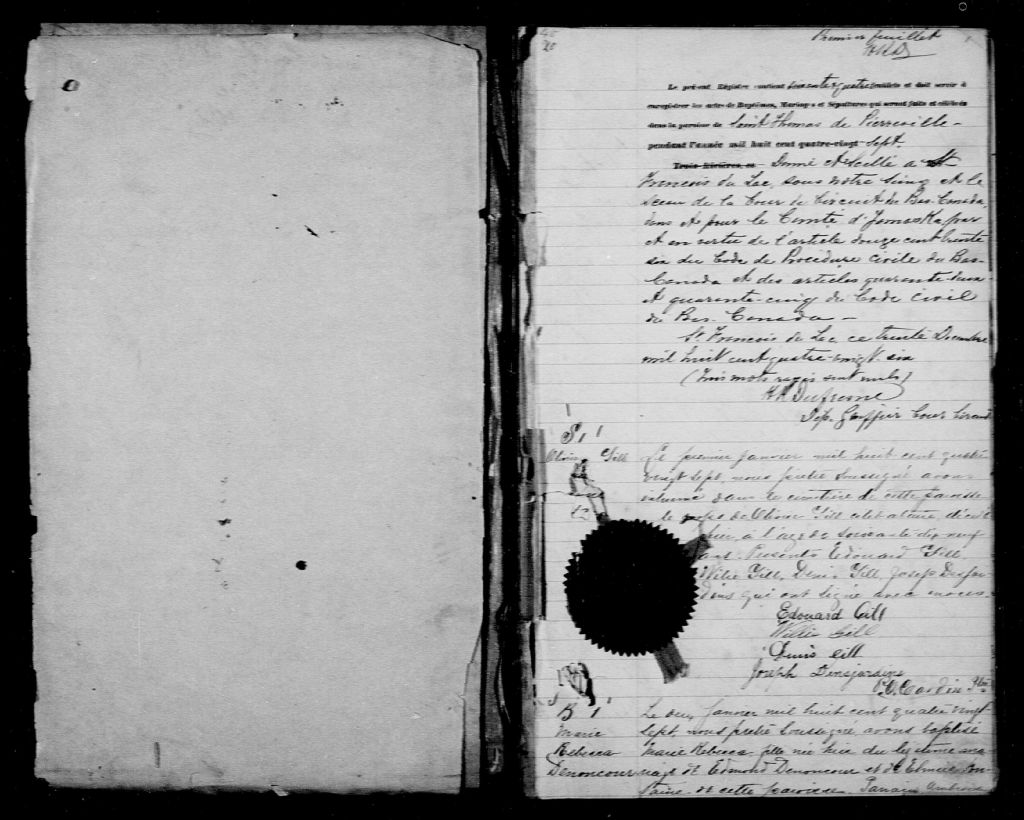 Premier feuillet
Le présent Régistre contient soixante quatre feuillets et doit servir à
enregistrer les actes de Baptêmes, Mariages et Sépultures qui seront faits et célébrés
dans la paroisse de Saint Thomas de Pierreville
pendant l'année mil huit cent quatre-vingt sept.
Trois-Rivières, ce Donné et Scellé à St
Francois du Lac, sous notre seing et le
Sceau de la Cour de Circuit du Bas-Canada,
dans et pour le Comté d'Yamaska, par
et en vertu de l'article douze cent trente
six du Code de Procédure civile du Bas-
Canada et des articles quarante-deux
et quarante-cinq du Code Civil
du Bas-Canada
St Francois du Lac ce trente Décembre
mil huit cent quatre-vingt six
(Trois mots rayés sont nuls)
Dufresne
Dép. Greffier Cour Circuit
S 1
Olivier Gill
Le premier Janvier mil huit cent quatre
vingt sept, nous prêtre soussigné avons
inhumé dans le cimetière de cette paroisse
le corps de Olivier Gill célibataire, décédé
hier, à l'age de soixante dix neuf
ans. Présents Edouard Gill
Willie Gill, Denis Gill, Joseph Desjar
dins qui ont signé avec nous.
Edouard Gill
Willie Gill
Denis Gill
Joseph Densjardins
B 1
Marie
Rebecca
Denoncour
Le deux Janvier mil huit cent quatre vingt
sept, nous prêtre soussigné avons baptisé
Marie Rebecca, fille née hier du légitime ma
riage de Edmond Denoncour et de Elmire
de cette paroisse. Parrain Ambroise